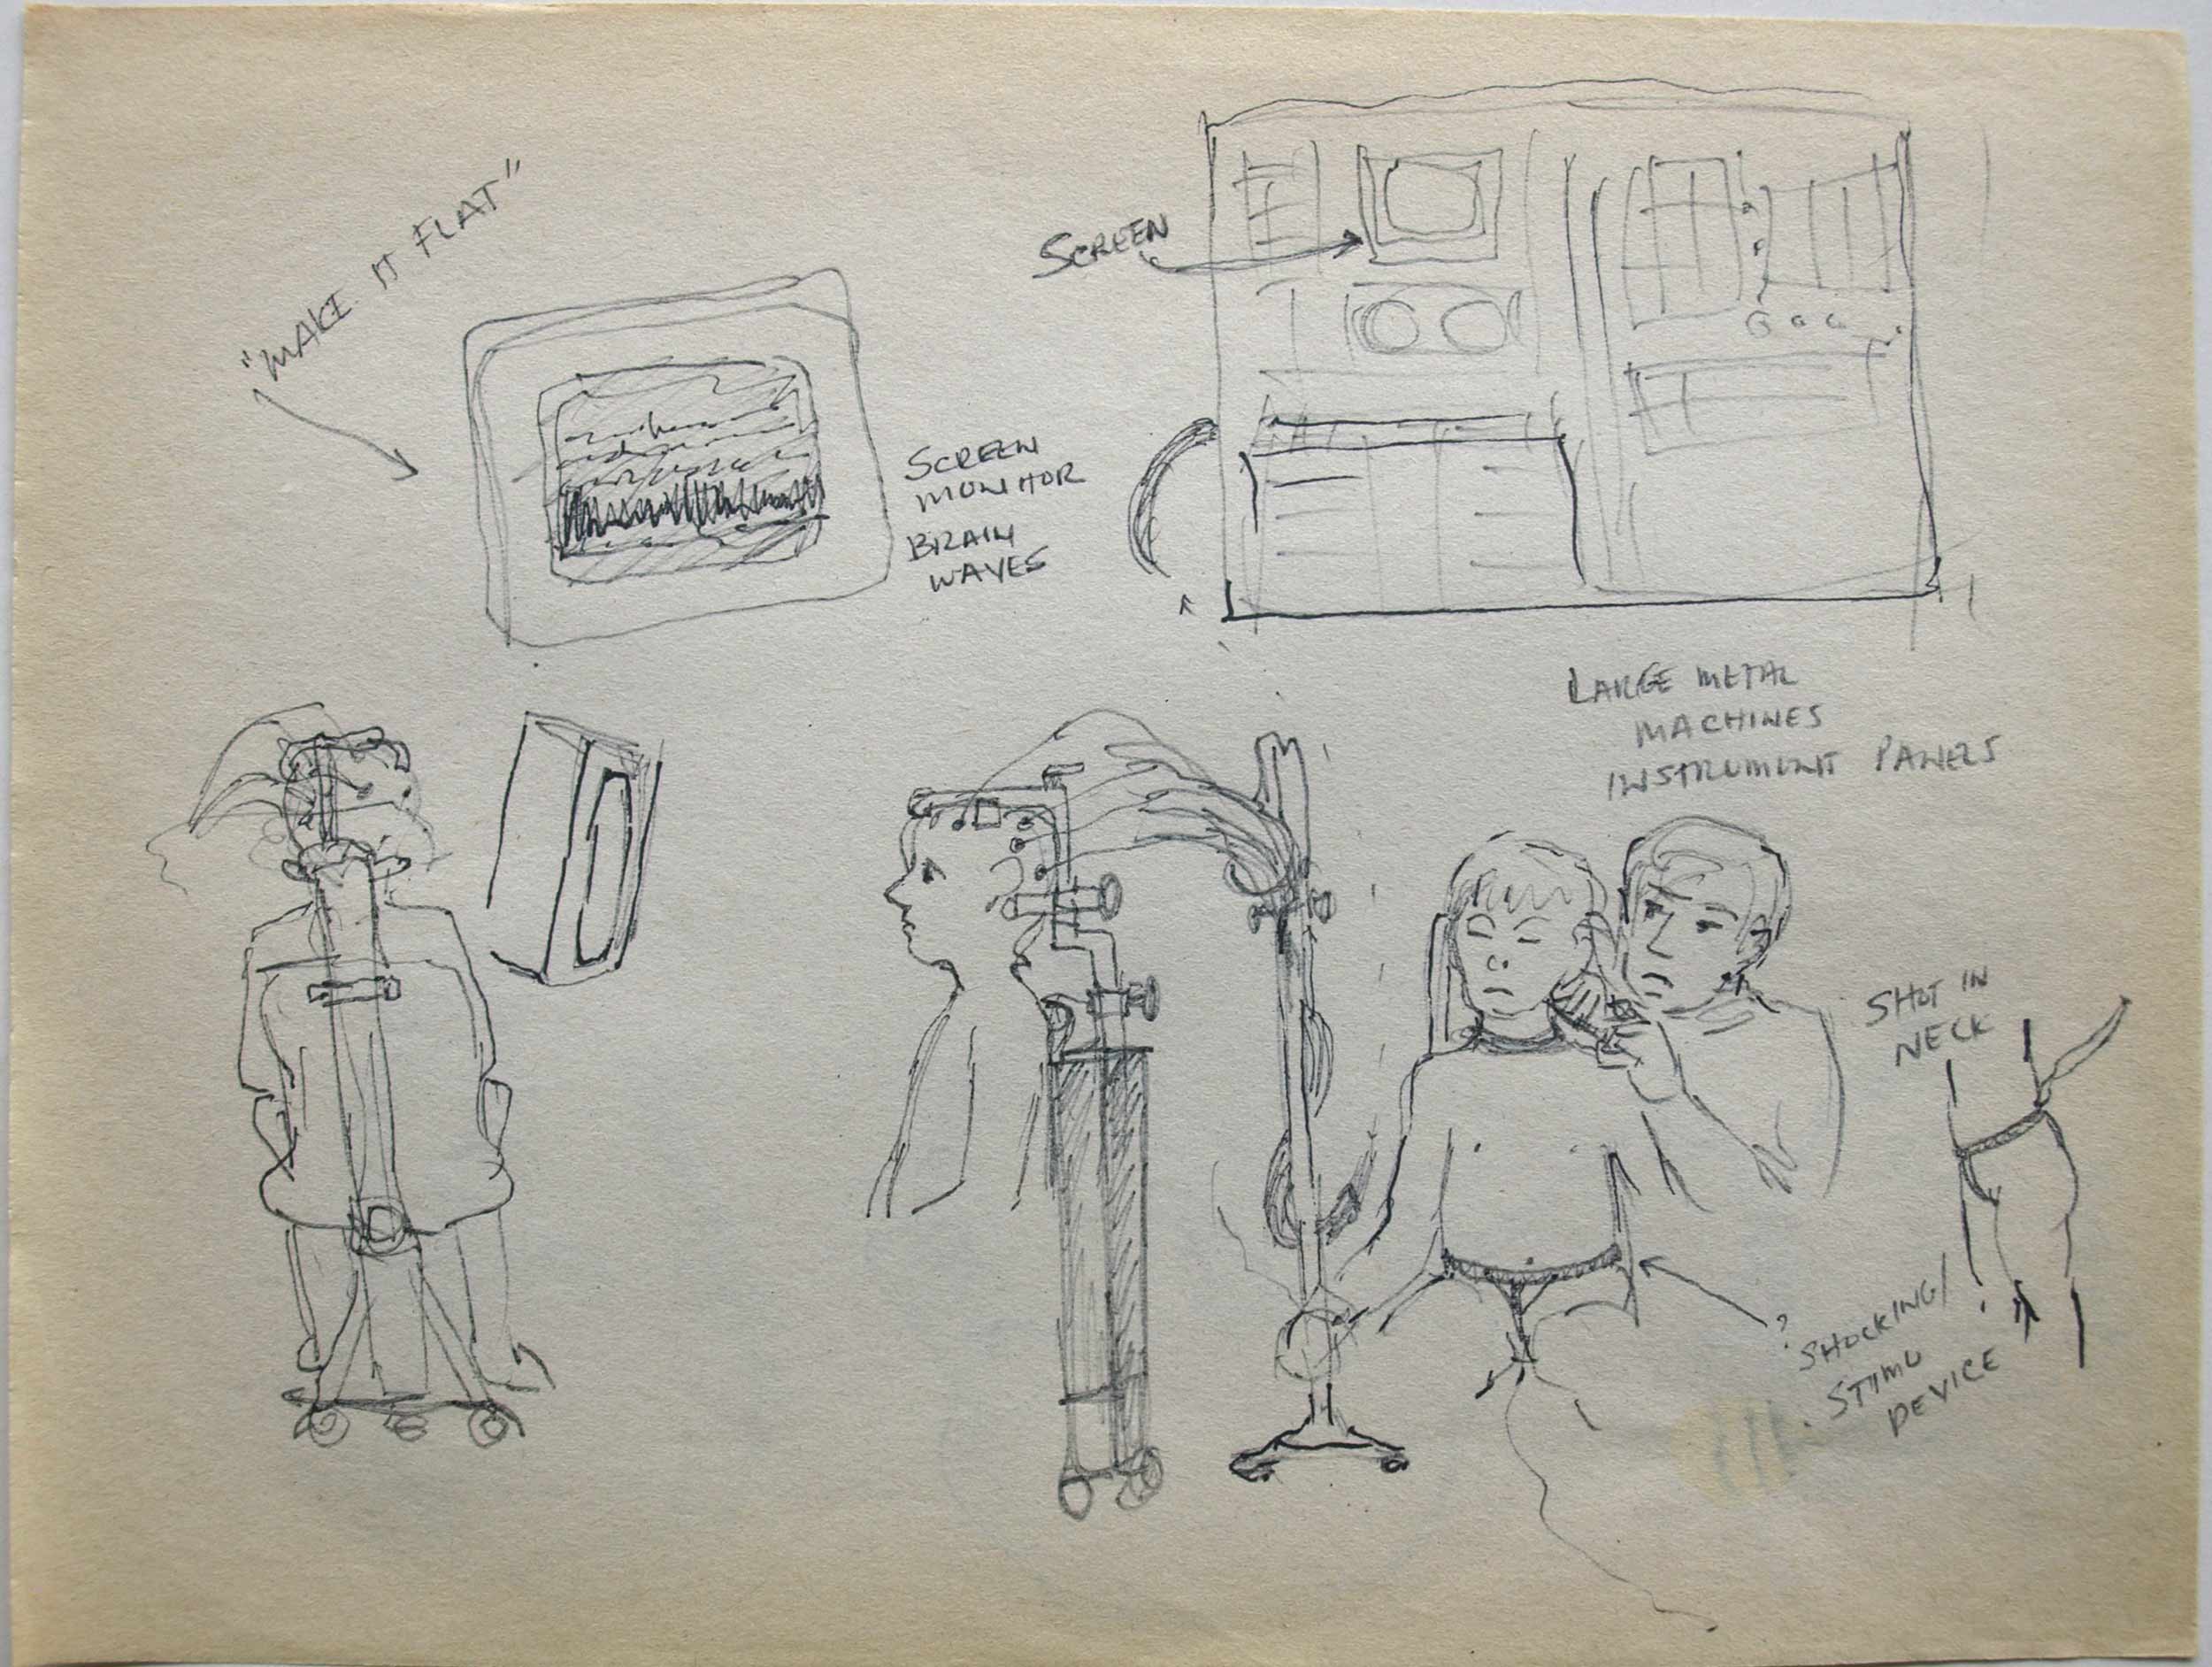 "MAKE IT FLAT"
SCREEN
SCREEN
MONITOR
BRAIN
WAVES
LARGE METAL
MACHINES
INSTRUMENT PANELS
SHOT IN
NECK
?
SHOCKING/
STIMU
DEVICE